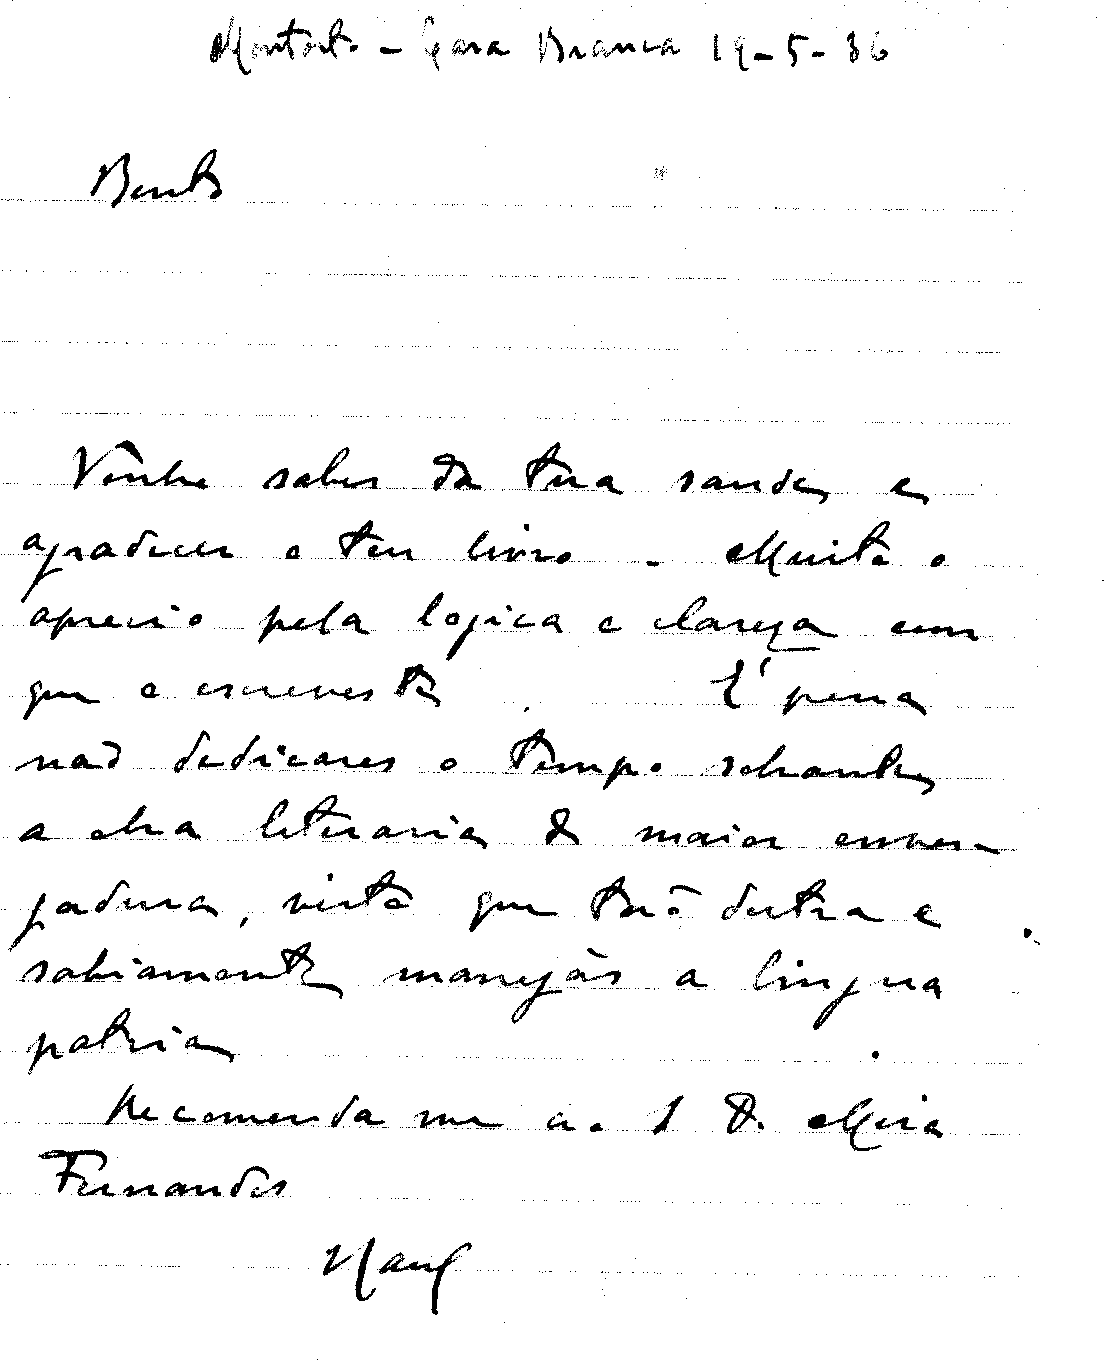 Montoito - Casa Branca 19-5-36
Bento
Venho saber da tua saude e
agradecer o teu livro - Muito o
aprecio pela logica e clareza com
que o escreveste. É pena
não dedicares o tempo sobrante
a obra literaria de maior enver-
gadura, visto que tão destra e
sabiamente manejas a lingua
patria.
Recomenda me ao Mira
Fernandes